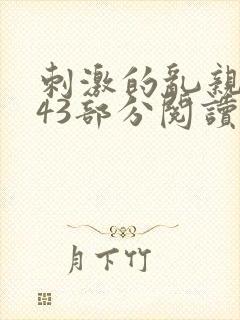 刺激的亂親
43部分閱讀
月下竹